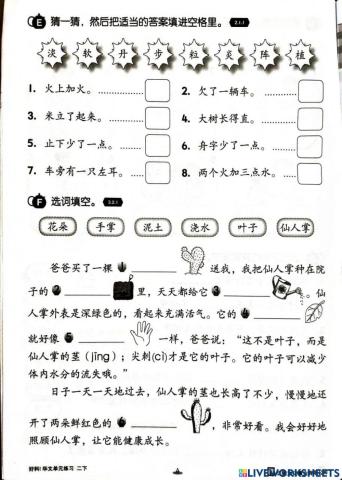 E 猜一猜，然后把适当的答案填进空格里。 2.1.1
淡 软 丹 步 粒 炎 阵 植
1. 火上加火。 …………
2. 欠了一辆车。 ………
3. 米立了起来。 ………
4. 大树长得直。 ………
5. 止下少了一点。 ……
6. 舟字少了一点。 ……
7. 车旁有一只左耳。 …
8. 两个火加三点水。 …
F 选词填空。 3.2.1
花朵 手掌 泥土 浇水 叶子 仙人掌
爸爸买了一棵 ________ 送我，我把仙人掌种在院
子的 ________ 里，天天都给它 ________ 。仙
人掌外表是深绿色的，看起来充满活气。它的 ________
就好像 ________ 一样，爸爸说：“这不是叶子，而是
仙人掌的茎（jīng）；尖刺(cì)才是它的叶子。它的叶子可以减少
体内水分的流失哦。”
日子一天一天地过去，仙人掌的茎也长高了不少，慢慢地还
开了两朵鲜红色的 ________ ，非常好看。我会好好地
照顾仙人掌，让它能健康成长。
好料! 华文单元练习 二下
LIVEWORKSHEETS